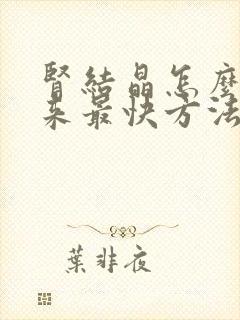 腎結晶怎麼
來最快方法
葉非夜